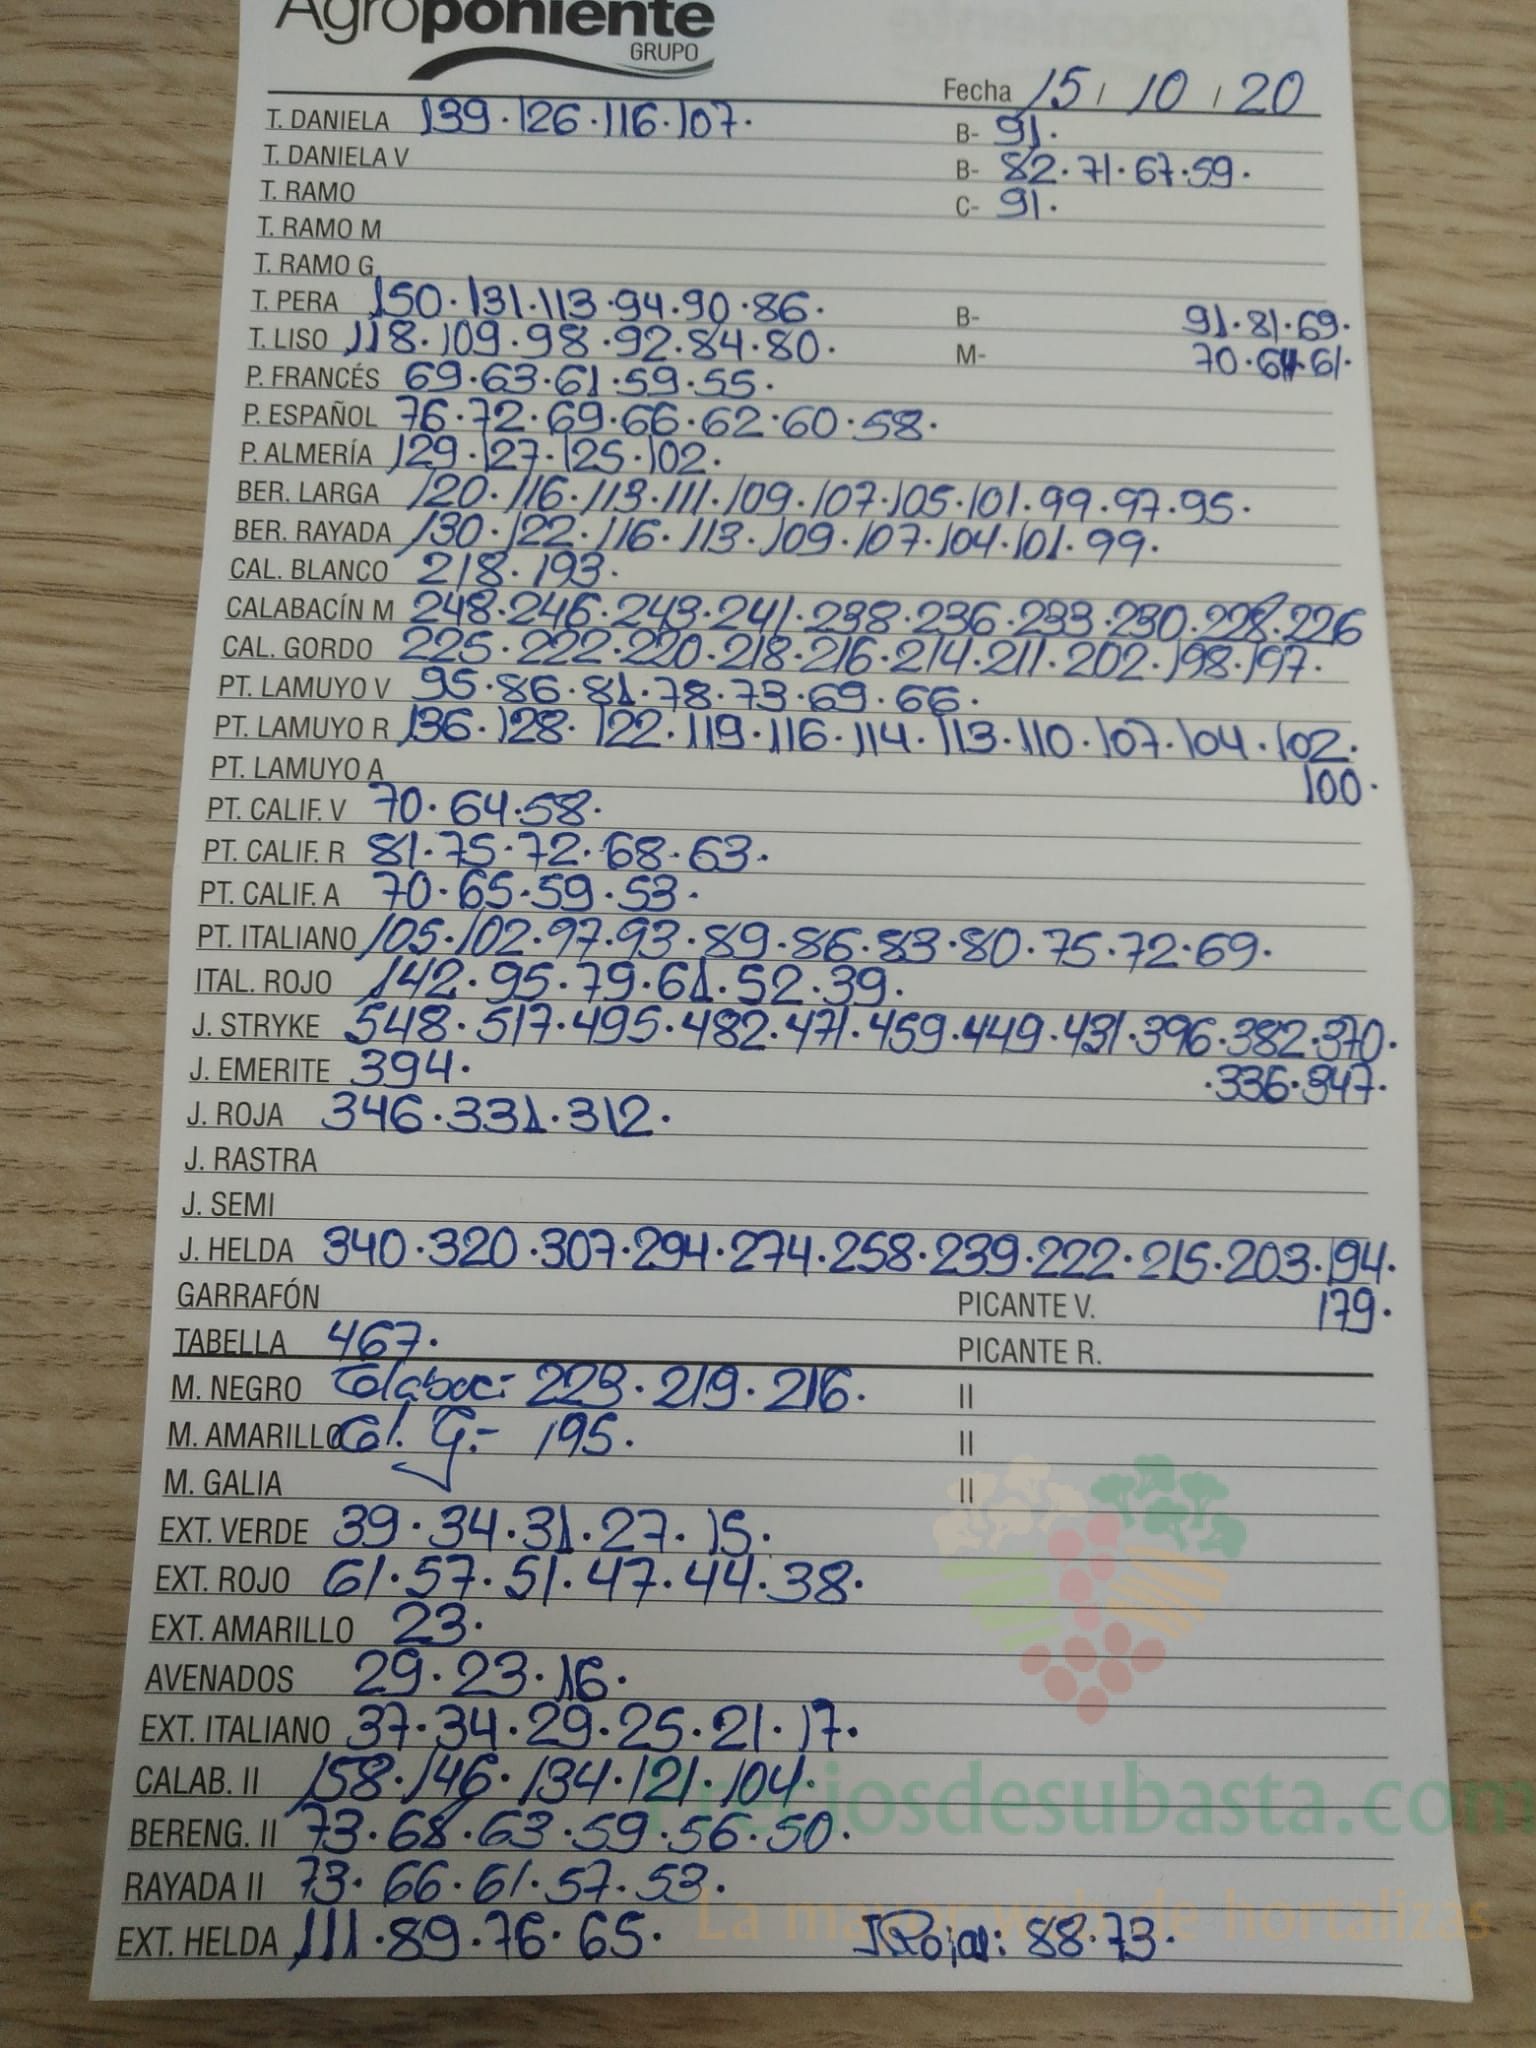 Agroponiente
GRUPO
Fecha 15 / 10 / 20
T. DANIELA 139·126·116·107· B- 91·
T. DANIELA V B- 82·71·67·59·
T. RAMO C- 91·
T. RAMO M
T. RAMO G
T. PERA 150·131·113·94·90·86· B- 91·81·69·
T. LISO 118·109·98·92·84·80· M- 70·64·61·
P. FRANCÉS 69·63·61·59·55·
P. ESPAÑOL 76·72·69·66·62·60·58·
P. ALMERÍA 129·127·125·102·
BER. LARGA 120·116·113·111·109·107·105·101·99·97·95·
BER. RAYADA 130·122·116·113·109·107·104·101·99·
CAL. BLANCO 218·193·
CALABACÍN M 248·246·243·241·238·236·233·230·228·226
CAL. GORDO 225·222·220·218·216·214·211·202·198·197·
PT. LAMUYO V 95·86·81·78·73·69·66·
PT. LAMUYO R 136·128·122·119·116·114·113·110·107·104·102·
PT. LAMUYO A 100·
PT. CALIF. V 70·64·58·
PT. CALIF. R 81·75·72·68·63·
PT. CALIF. A 70·65·59·53·
PT. ITALIANO 105·102·97·93·89·86·83·80·75·72·69·
ITAL. ROJO 142·95·79·61·52·39·
J. STRYKE 548·517·495·482·471·459·449·431·396·382·370·
J. EMERITE 394· ·336·347·
J. ROJA 346·331·312·
J. RASTRA
J. SEMI
J. HELDA 340·320·307·294·274·258·239·222·215·203·194·
GARRAFÓN PICANTE V. 179·
TABELLA 467· PICANTE R.
M. NEGRO 223·219·216· II
M. AMARILLO G.- 195· II
M. GALIA II
EXT. VERDE 39·34·31·27·15·
EXT. ROJO 61·57·51·47·44·38·
EXT. AMARILLO 23·
AVENADOS 29·23·16·
EXT. ITALIANO 37·34·29·25·21·17·
CALAB. II 158·146·134·121·104·
Preciosdesubasta.com
BERENG. II 73·68·63·59·56·50·
RAYADA II 73·66·61·57·53·
La mayor web de hortalizas
EXT. HELDA 111·89·76·65· J Rojas: 88·73·